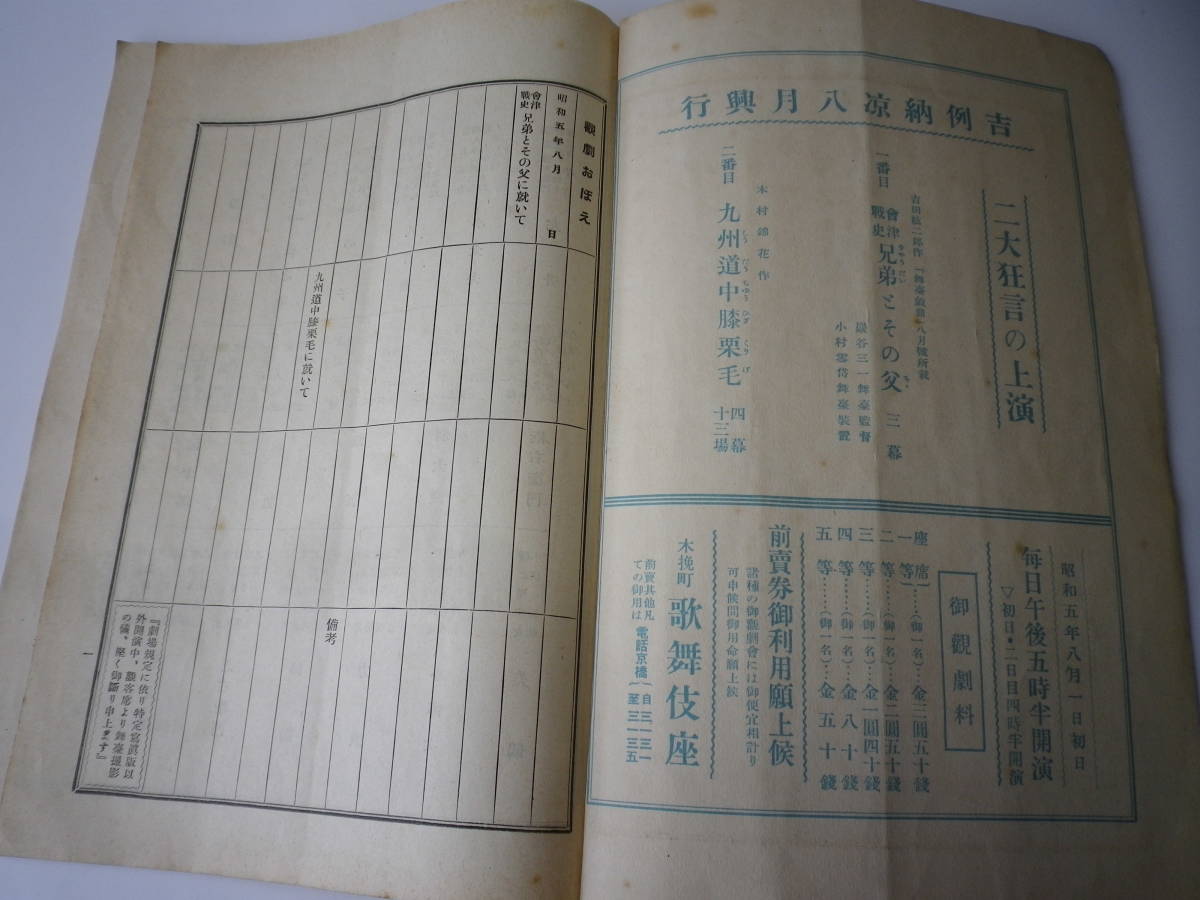 吉例納涼八月興行
二大狂言の上演
吉田絃二郎作『舞臺戲曲』八月號所載
一番目 會津戰史 兄弟とその父 三幕
きやうだい ちゝ
巖谷三一舞臺監督
小村雪岱舞臺裝置
木村錦花作
二番目 九州道中膝栗毛 四幕十三場
しう だう ちゆう ひざ くり げ
昭和五年八月一日初日
毎日午後五時半開演
▽初日・二日目四時半開演
御觀劇料
座席一等……(御一名)…金三圓五十錢
二等……(御一名)…金二圓五十錢
三等……(御一名)…金一圓四十錢
四等……(御一名)…金八十錢
五等……(御一名)…金五十錢
前賣券御利用願上候
諸種の御觀劇會には御便宜相計り
可申候間御用命願上候
木挽町 歌舞伎座
前賣其他凡
ての御用は
電話京橋(自三一三一至三一三五
觀劇おぼえ
昭和五年八月 日
會津戰史 兄弟とその父に就いて
九州道中膝栗毛に就いて
備考
『劇場規定に依り特定寫眞版以
外開演中、觀客席より舞臺撮影
の儀、堅く御斷り申上ます』
一